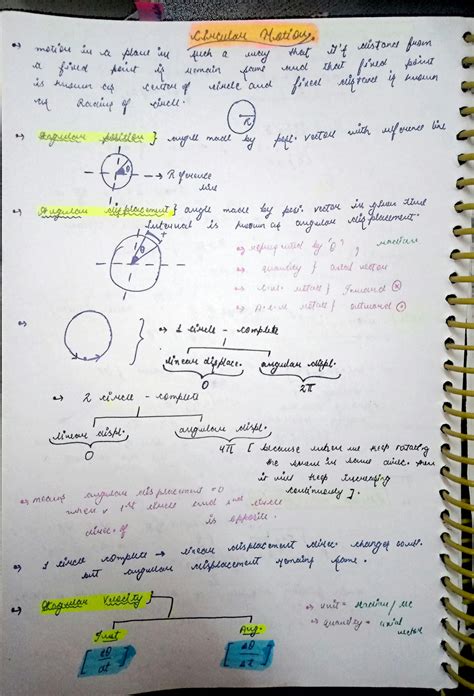 Circular Motion.
⇒ motion in a plane in such a way that it's distance from
a fixed point is remain same and that fixed point
is known as center of circle and fixed distance is known
as Radius of circle.
R
⇒ Angular position } angle made by posi. vector with reference line
θ
→ Reference
line
⇒ Angular displacement } angle made by posi. vector in given time
interval is known as angular displacement.
θ
⇒ represented by θ , radian
⇒ quantity } axial vector
⇒ rotat } Inward ⊗
⇒ rotat } outward ⊙
⇒ 1 circle - complete
linear displace. angular displ.
0 2π
→ 2 circle - complete
linear displ. angular displ.
0 4π [ because when we keep rotating
the in same direc. then
it will keep increasing
continuously ].
⇒ means angular displacement = 0
when 1st circle and 2nd circle
direc. of is opposite.
⇒ 1 circle complete → linear displacement direc. changes
but angular displacement remains same.
⇒ Angular Velocity }
Inst Avg.
[dθ/dt] [Δθ/Δt]
⇒ unit = radian / sec
⇒ quantity = axial
vector